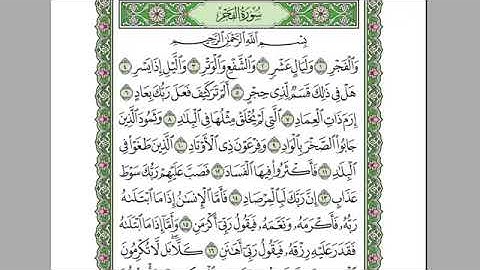 سُورَةُ الفَجْرِ
بِسْمِ اللَّهِ الرَّحْمَٰنِ الرَّحِيمِ
وَالْفَجْرِ ۝١ وَلَيَالٍ عَشْرٍ ۝٢ وَالشَّفْعِ وَالْوَتْرِ ۝٣ وَاللَّيْلِ إِذَا يَسْرِ ۝٤
هَلْ فِي ذَٰلِكَ قَسَمٌ لِذِي حِجْرٍ ۝٥ أَلَمْ تَرَ كَيْفَ فَعَلَ رَبُّكَ بِعَادٍ ۝٦
إِرَمَ ذَاتِ الْعِمَادِ ۝٧ الَّتِي لَمْ يُخْلَقْ مِثْلُهَا فِي الْبِلَادِ ۝٨ وَثَمُودَ الَّذِينَ
جَابُوا الصَّخْرَ بِالْوَادِ ۝٩ وَفِرْعَوْنَ ذِي الْأَوْتَادِ ۝١٠ الَّذِينَ طَغَوْا فِي
الْبِلَادِ ۝١١ فَأَكْثَرُوا فِيهَا الْفَسَادَ ۝١٢ فَصَبَّ عَلَيْهِمْ رَبُّكَ سَوْطَ
عَذَابٍ ۝١٣ إِنَّ رَبَّكَ لَبِالْمِرْصَادِ ۝١٤ فَأَمَّا الْإِنسَانُ إِذَا مَا ابْتَلَاهُ
رَبُّهُ فَأَكْرَمَهُ وَنَعَّمَهُ فَيَقُولُ رَبِّي أَكْرَمَنِ ۝١٥ وَأَمَّا إِذَا مَا ابْتَلَاهُ
فَقَدَرَ عَلَيْهِ رِزْقَهُ فَيَقُولُ رَبِّي أَهَانَنِ ۝١٦ كَلَّا بَل لَّا تُكْرِمُونَ